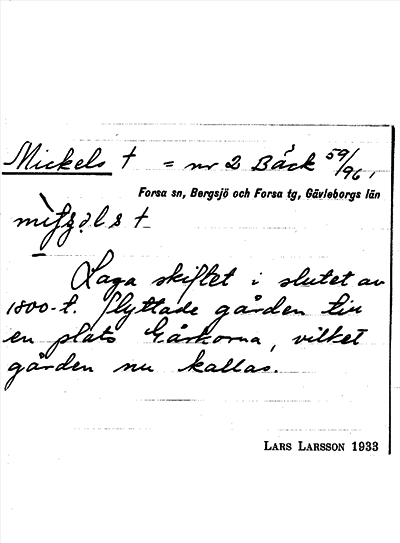 Mickels † = nr 2 Bäck 59/196,
Forsa sn, Bergsjö och Forsa tg, Gävleborgs län
Laga skiftet i slutet av
1800-t. flyttade gården till
en plats Gårkorna, vilket
gården nu kallas.
LARS LARSSON 1933